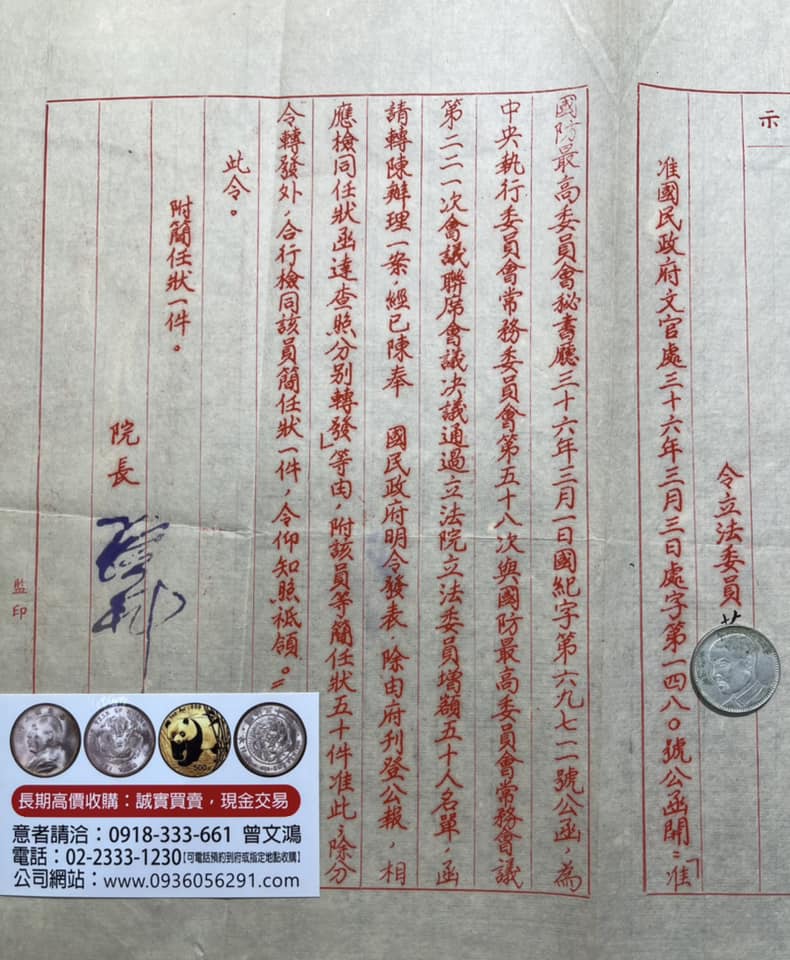 示
令立法委員
准國民政府文官處三十六年三月三日處字第一四八〇號公函開：「准
國防最高委員會秘書廳三十六年三月一日國紀字第六九七一一號公函，為
中央執行委員會常務委員會第五十八次與國防最高委員會常務會議
第二二一次會議聯席會議決議通過立法院立法委員增額五十人名單，函
請轉陳辦理一案，經已陳奉　國民政府明令發表，除由府刊登公報，相
應檢同任狀函達查照分別轉發」等由，附該員等簡任狀五十件准此；除分
令轉發外，合行檢同該員簡任狀一件，令仰知照祗領。
此令。
附簡任狀一件。
院長
監印
長期高價收購：誠實買賣，現金交易
意者請洽：0918-333-661 曾文鴻
電話：02-2333-1230【可電話預約到府或指定地點收購】
公司網站：www.0936056291.com